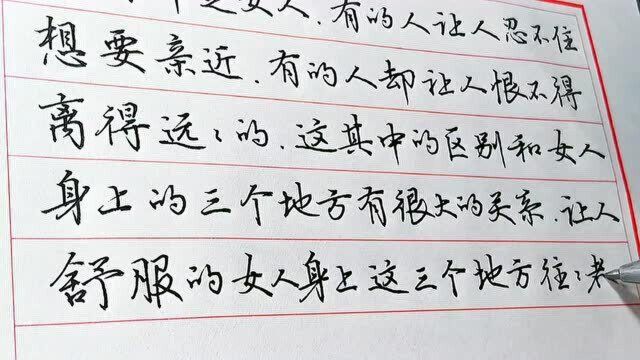 是女人，有的人让人忍不住
想要亲近，有的人却让人恨不得
离得远々的，这其中的区别和女人
身上的三个地方有很大的关系，让人
舒服的女人身上这三个地方往々